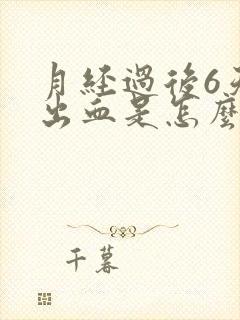 月經過後6天
出血是怎麼
千暮